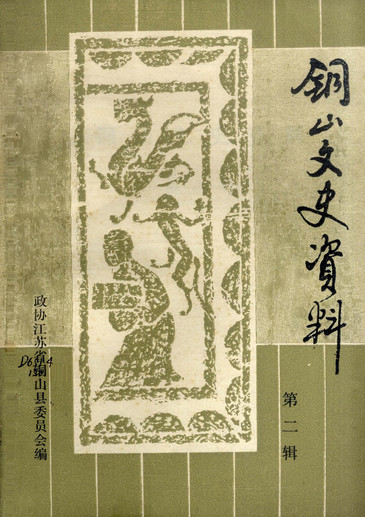 铜山文史資料
第二辑
政协江苏省铜山县委员会编